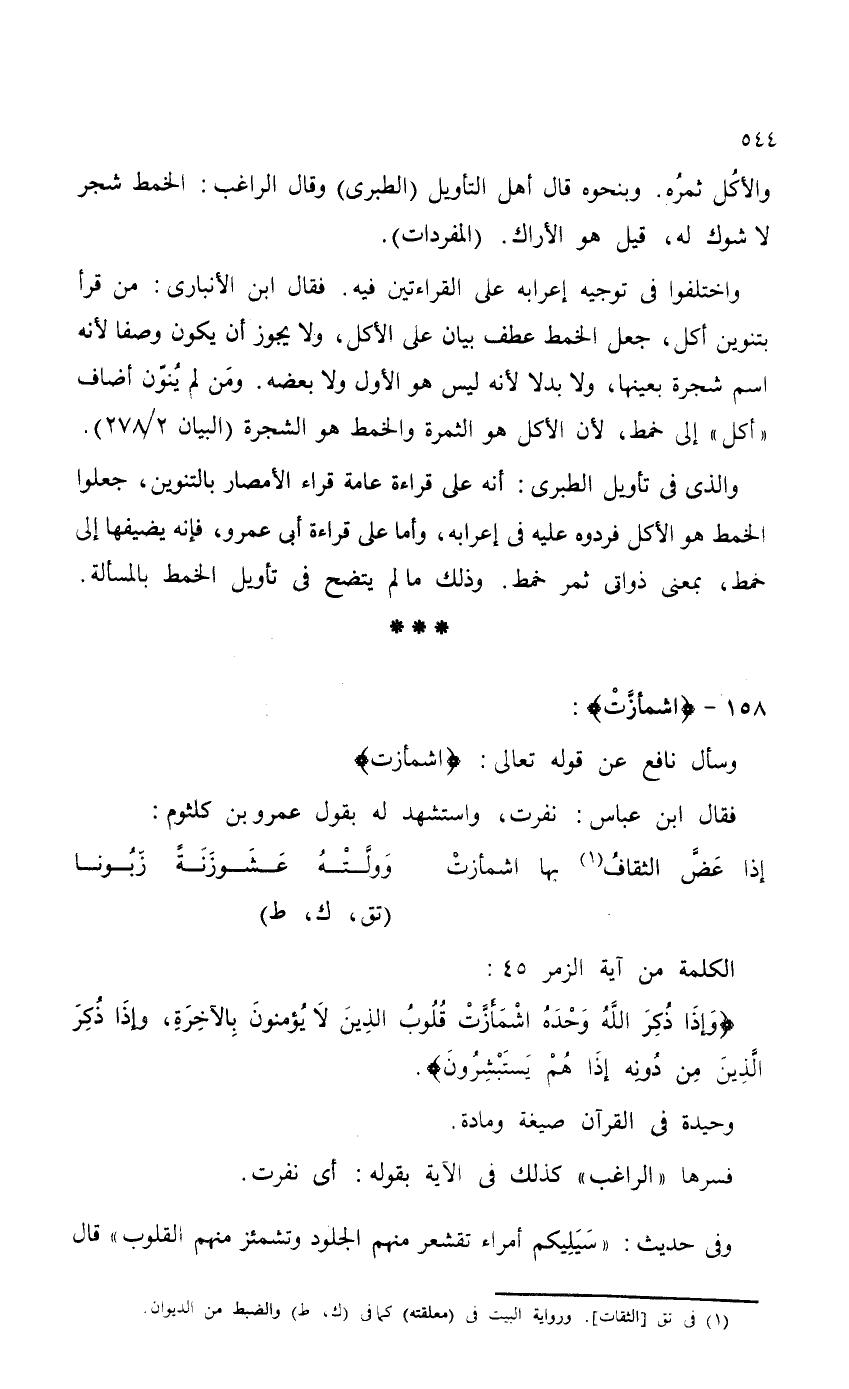 ٥٤٤
والأكُل ثمرُه. وبنحوه قال أهل التأويل (الطبرى) وقال الراغب: الخمط شجر
لا شوك له، قيل هو الأراك. (المفردات).
واختلفوا فى توجيه إعرابه على القراءتين فيه. فقال ابن الأنبارى: من قرأ
بتنوين أكل، جعل الخمط عطف بيان على الأكل، ولا يجوز أن يكون وصفا لأنه
اسم شجرة بعينها، ولا بدلا لأنه ليس هو الأول ولا بعضه. ومَن لم يُنوّن أضاف
«أكل» إلى خمط، لأن الأكل هو الثمرة والخمط هو الشجرة (البيان ٢٧٨/٢).
والذى فى تأويل الطبرى: أنه على قراءة عامة قراء الأمصار بالتنوين، جعلوا
الخمط هو الأكل فردوه عليه فى إعرابه، وأما على قراءة أبى عمرو، فإنه يضيفها إلى
خمط، بمعنى ذواتى ثمر خمط. وذلك مالم يتضح فى تأويل الخمط بالمسألة.
***
١٥٨ - ﴿اشمأزَّتْ﴾:
وسأل نافع عن قوله تعالى: ﴿اشمأزت﴾
فقال ابن عباس: نفرت، واستشهد له بقول عمرو بن كلثوم:
إذا عَضَّ الثقافُ(١) بها اشمأزتْ وَولَّـتْـهُ عَـشَـوزَنَـةً زَبُـونـا
(تق، ك، ط)
الكلمة من آية الزمر ٤٥:
﴿وَإذَا ذُكِرَ اللَّهُ وَحْدَهُ اشْمَأَزَّتْ قُلُوبُ الذِينَ لَا يُؤمنونَ بِالآخِرَةِ، وإذَا ذُكِرَ
الَّذِينَ مِن دُونِه إذَا هُمْ يَستَبْشِرُونَ﴾.
وحيدة فى القرآن صيغة ومادة.
فسرها «الراغب» كذلك فى الآية بقوله: أى نفرت.
وفى حديث: «سَيَلِيكم أمراء تقشعر منهم الجلود وتشمئز منهم القلوب» قال
(١) فى تق [الثقات]. ورواية البيت فى (معلقته) كما فى (ك، ط) والضبط من الديوان.